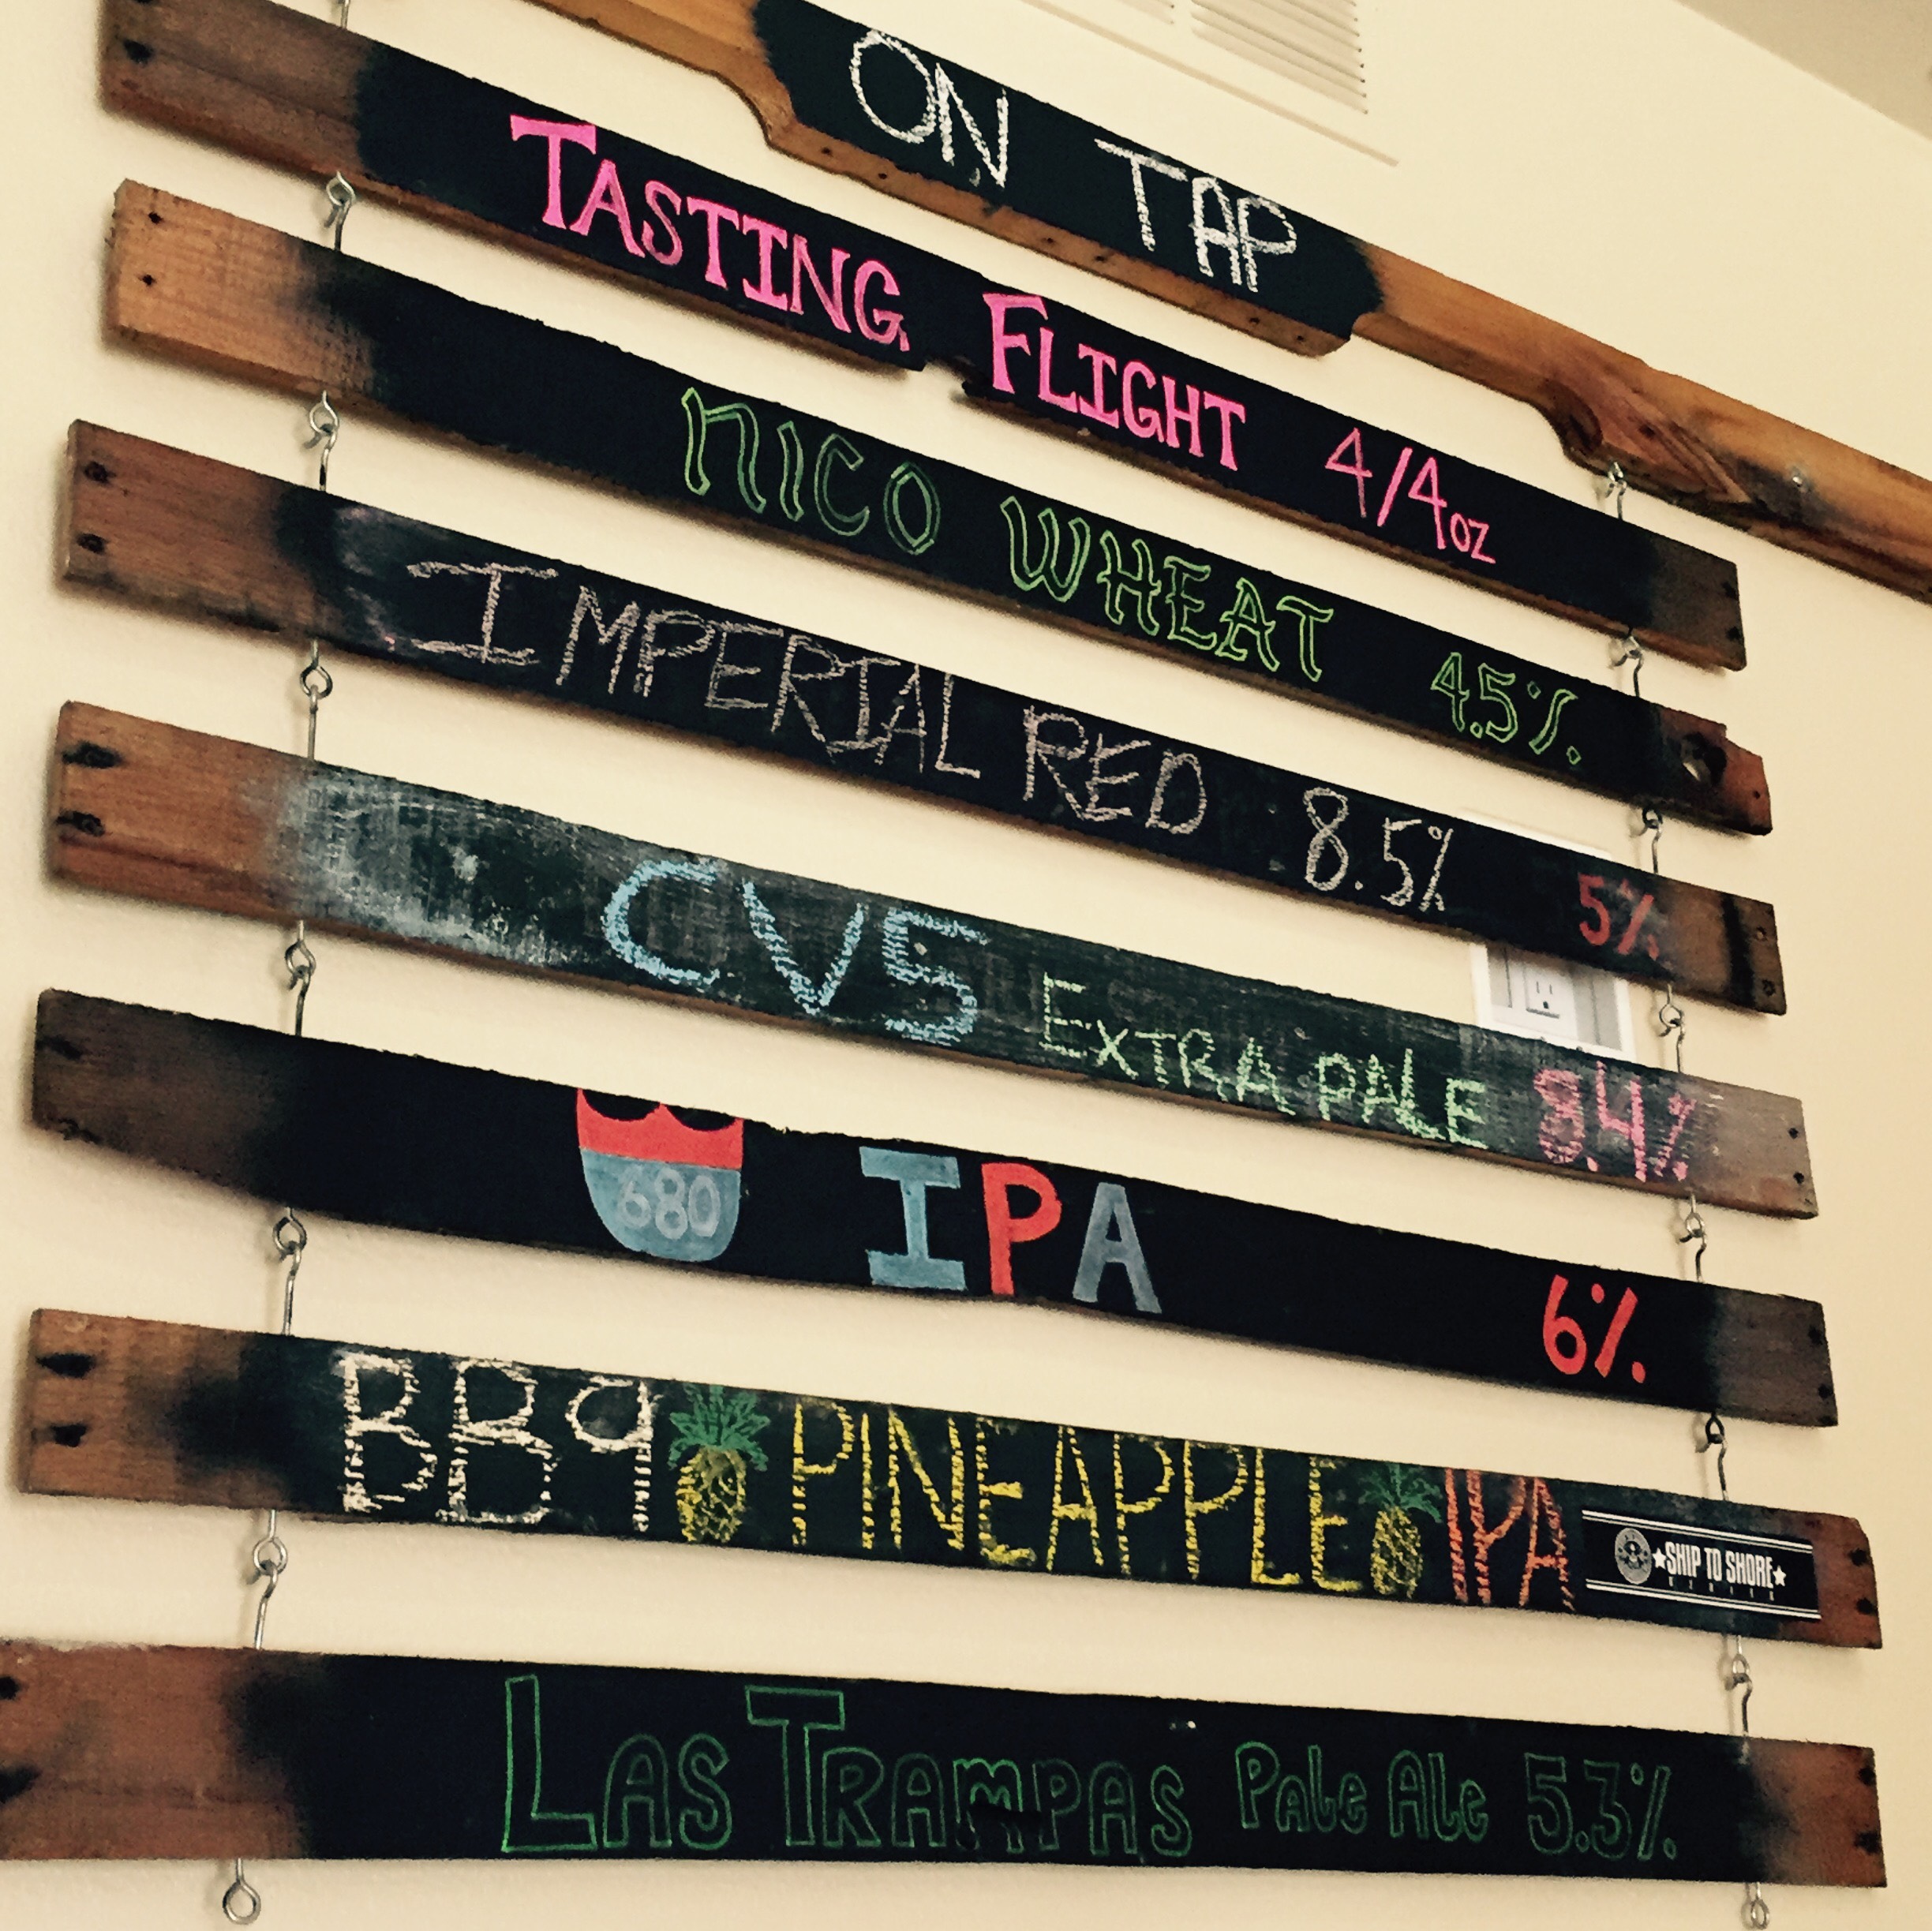 ON TAP
TASTING FLIGHT 4/4oz
NICO WHEAT 4.5%
IMPERIAL RED 8.5% 5%
CV5 EXTRA PALE 8.4%
680 IPA 6%
BB9 PINEAPPLE IPA ★SHIP TO SHORE★
SERIES
LAS TRAMPAS Pale Ale 5.3%